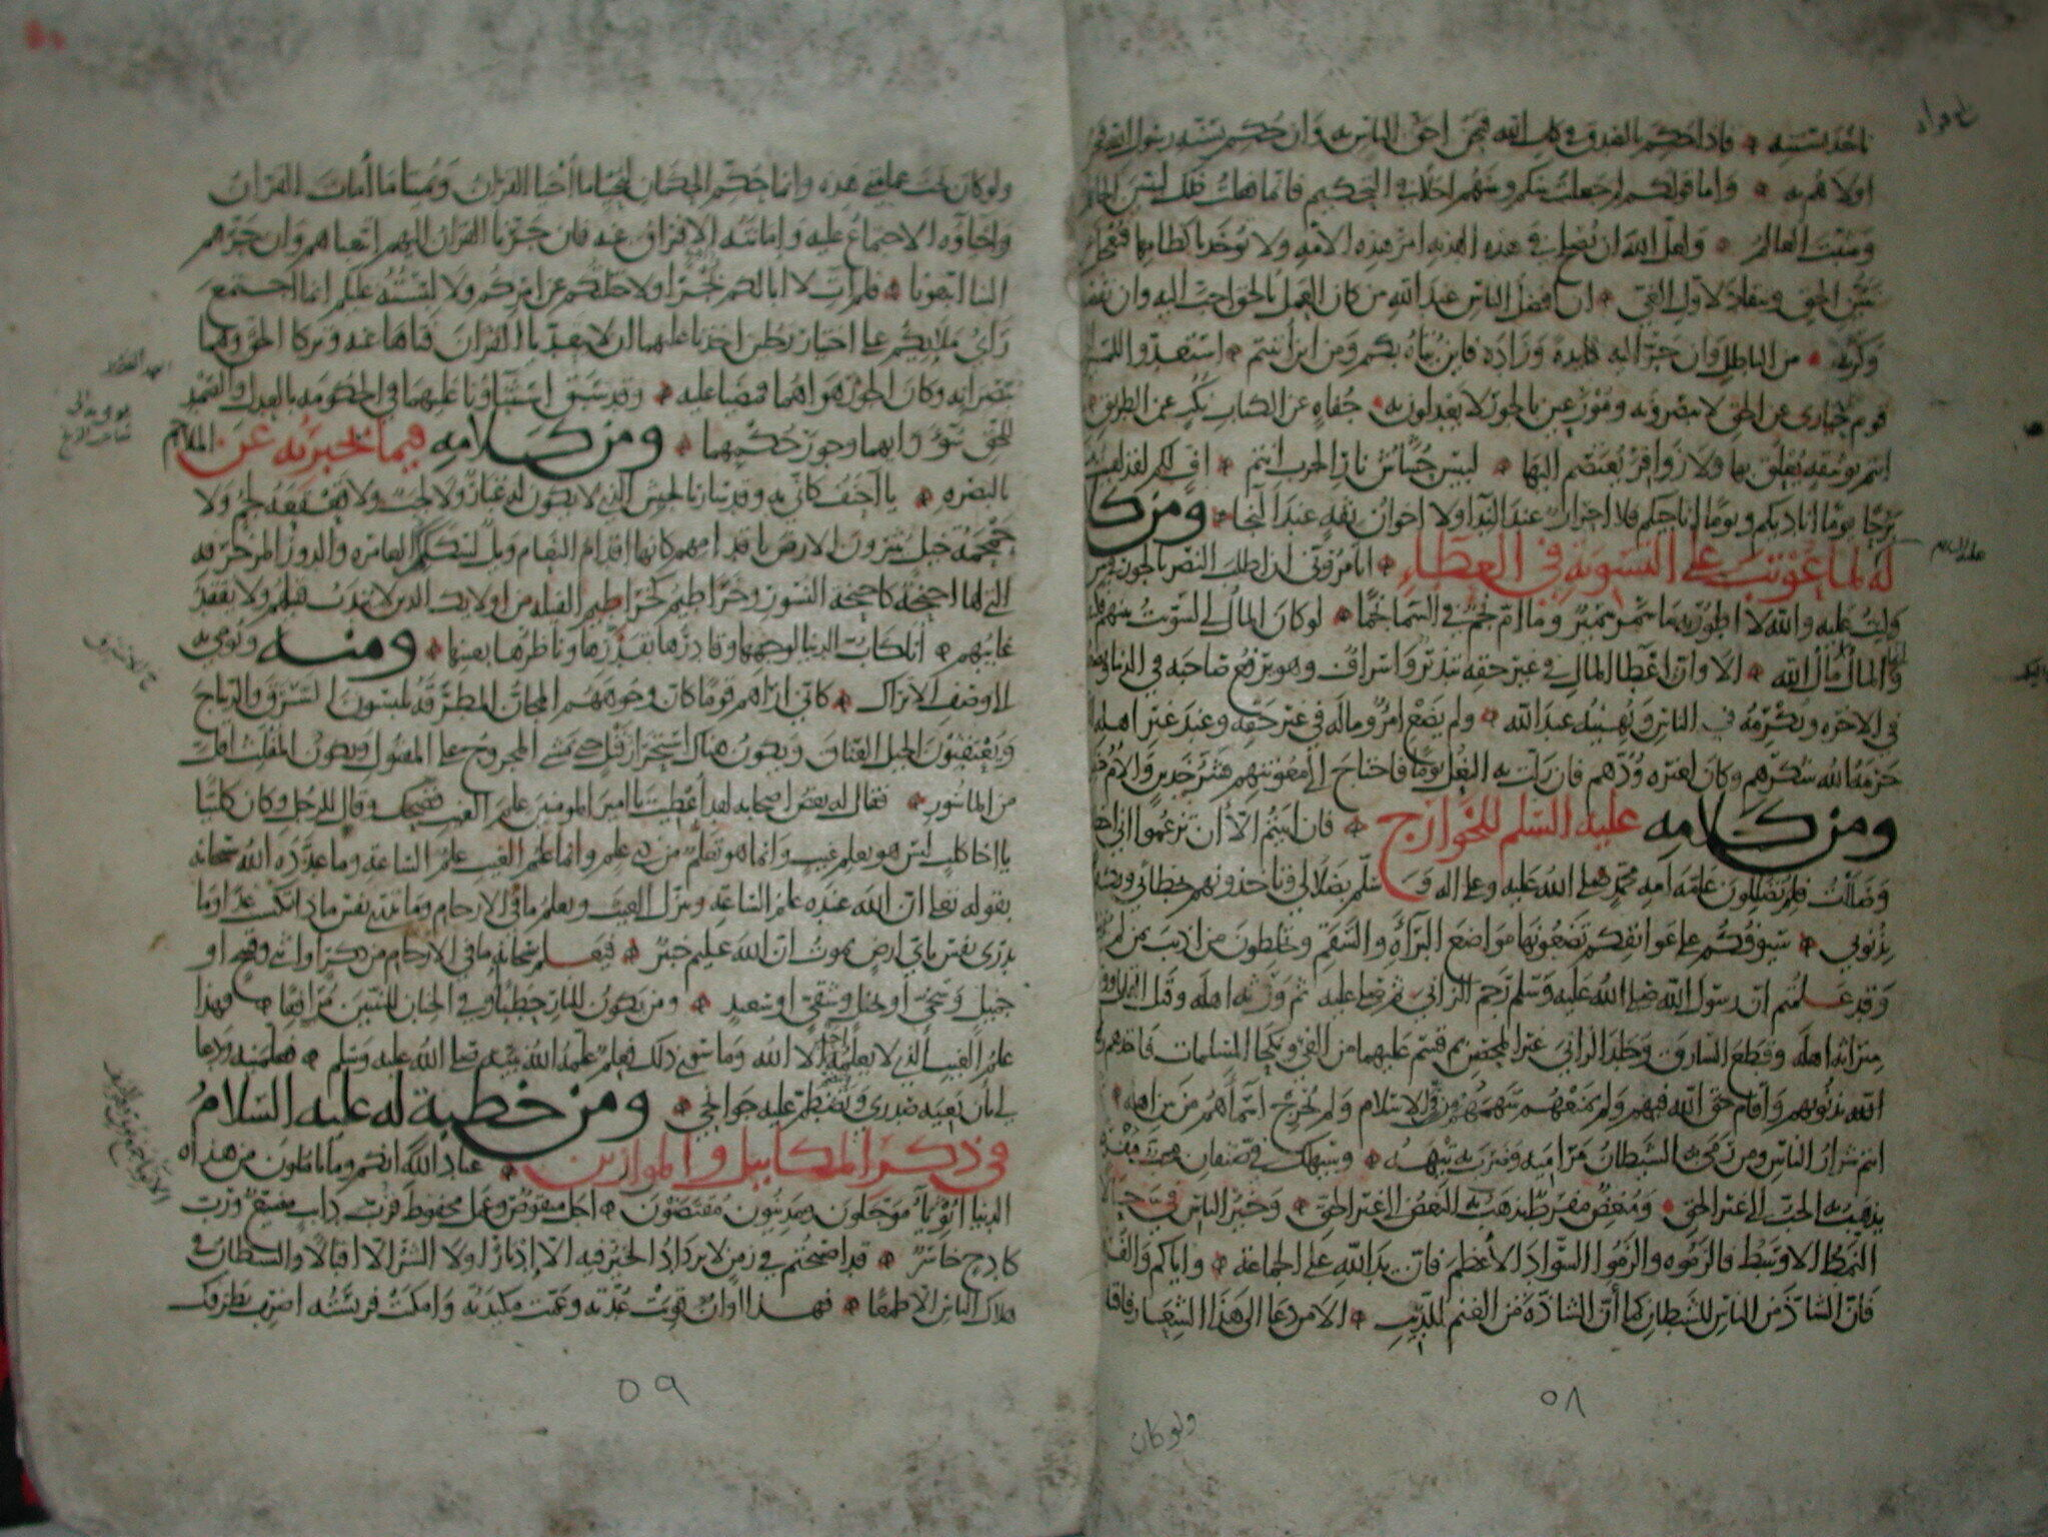 ناخذ بسنته فاذا حكم بالصدق في كتاب الله فنحن احق الناس به وان حكم بسنة رسول الله فنحن
اولاهم به واما قولكم لم جعلت بينكم وبينهم اجلا في التحكيم فانما فعلت ذلك ليتبين الجاهل
ويتثبت العالم ولعل الله ان يصلح في هذه الهدنة امر هذه الامه ولا توخذ باكظامها فتعجل
عن تبين الحق وتنقاد لاول الغي ان افضل الناس عند الله من كان العمل بالحق احب اليه وان نقصه
وكرثه من الباطل وان جر اليه فايدة وزاده فاين يتاه بكم ومن اين أتيتم استعدوا للمسير
قوم حيارى عن الحق لا يبصرونه وموزعين بالجور لا يعدلون به جفاه عن الكتاب نكب عن الطريق
ما انتم بوثيقه يعلق بها ولا زوافر يعتصم اليها لبيس حشاش نار الحرب انتم اف لكم لقد لقيت
برحا يوما اناديكم ويوما اناجيكم فلا احرار عند الندا ولا اخوان ثقه عند النجا ومن كلام
له لما عوتب على التسوية في العطاء اتامروني ان اطلب النصر بالجور فيمن
وليت عليه والله لا اطور به ما سمر سمير وما ام نجم في السما نجما لو كان المال لي لسويت بينهم فكيف
وانما المال مال الله الا وان اعطا المال في غير حقه تبذير واسراف وهو يرفع صاحبه في الدنيا ويضعه
في الاخره ويكرمه في الناس ويهينه عند الله ولم يضع امرؤ ماله في غير حقه وعند غير اهله الا
حرمه الله شكرهم وكان لغيره ودهم فان زلت به النعل يوما فاحتاج الى معونتهم فشر خدين والام خليل
ومن كلامه عليه السلم للخوارج فان ابيتم الا أن تزعموا اني اخطات
وضللت فلم تضللون عامة امة محمد صلى الله عليه وعلى اله وسلم بضلالي وتاخذونهم بخطائي وتكفرونهم
بذنوبي سيوفكم على عواتقكم تضعونها مواضع البرأه والسقم وتخلطون من اذنب بمن لم يذنب
وقد علمتم ان رسول الله صلى الله عليه وسلم رجم الزاني ثم صلى عليه ثم ورثه اهله وقتل القاتل وورث
ميراثه اهله وقطع السارق وجلد الزاني غير المحصن ثم قسم عليهما من الفي ونكحا المسلمات فاخذهم رسول
الله بذنوبهم واقام حق الله فيهم ولم يمنعهم سهمهم من الاسلام ولم يخرج اسماهم من بين اهله ثم
انتم شرار الناس ومن رمى به الشيطان مراميه وضرب به تيهه وسيهلك في صنفان محب مفرط
يذهب به الحب الى غير الحق ومبغض مفرط يذهب به البغض الى غير الحق وخير الناس في حالا
النمط الاوسط فالزموه والزموا السواد الاعظم فان يد الله على الجماعة واياكم والفرقة
فان الشاذ من الناس للشيطان كما أن الشاذة من الغنم للذيب الا من دعا الى هذا الشعار فاقتلوه
ولو كان
٥٨
ولو كان تحت عمامتي هذه وانما حكم الحكمان ليحييا ما أحيا القرآن ويميتا ما أمات القرآن
واحياؤه الاجتماع عليه واماتته الافتراق عنه فان جرنا القرآن اليهم اتبعناهم وان جرهم
الينا اتبعونا فلم ات لا ابا لكم بجرا ولا ختلتكم عن امركم ولا لبسته عليكم انما اجتمع
رأي ملايكم على اختيار رجلين اخذنا عليهما ان لا يتعديا القرآن فتاها عنه وتركا الحق وهما
يبصرانه وكان الجور هواهما فمضيا عليه وقد سبق استثناؤنا عليهما في الحكومه بالعدل والصمد
للحق سوء رايهما وجور حكمهما ومن كلامه فيما يخبر به عن الملاحم
بالبصره يا احنف كاني به وقد سار بالجيش الذي لا يكون له غبار ولا لجب ولا قعقعة لجم ولا
حمحمة خيل يثيرون الارض باقدامهم كانها اقدام النعام ويل لسكككم العامره والدور المزخرفه
التي لها اجنحة كاجنحة النسور وخراطيم كخراطيم الفيله من اوليك الذين لا يندب قتيلهم ولا يفقد
غايبهم انا كاب الدنيا لوجهها وقادرها بقدرها وناظرها بعينها ومنه ويومي به
الى وصف الاتراك كاني اراهم قوما كان وجوههم المجان المطرقه يلبسون السرق والديباج
ويعتقبون الخيل العتاق ويكون هناك استحرار قتل حتى يمشي المجروح على المقتول ويكون المفلت اقل
من الماسور فقال له بعض اصحابه لقد أعطيت يا امير المومنين علم الغيب فضحك وقال للرجل وكان كلبيا
يا اخا كلب ليس هو بعلم غيب وانما هو تعلم من ذي علم وانما علم الغيب علم الساعة وما عدده الله سبحانه
بقوله تعالى ان الله عنده علم الساعة وينزل الغيث ويعلم ما في الارحام وما تدري نفس ماذا تكسب غدا وما
تدري نفس باي ارض تموت ان الله عليم خبير فيعلم سبحانه ما في الارحام من ذكر او انثى وقبيح او
جميل وسخي أو بخيل وشقي او سعيد ومن يكون للنار حطبا او في الجنان للنبيين مرافقا فهذا
علم الغيب الذي لا يعلمه احد الا الله وما سوى ذلك فعلم علمه الله نبيه صلى الله عليه وسلم فعلمنيه ودعا
لي بأن يعيه صدري وتضطم عليه جوانحي ومن خطبة له عليه السلام
في ذكر المكاييل والموازين عباد الله انكم وما تاملون من هذه
الدنيا اثوياء موجلون ومدينون مقتضون اجل منقوص وعمل محفوظ فرب دايب مضيع ورب
كادح خاسر قد اصبحتم في زمن لا يزداد الخير فيه الا إدبارا ولا الشر الا اقبالا والشيطان في
هلاك الناس الا طمعا فهذا اوان قويت عدته وعمت مكيدته وامكنت فريسته اضرب بطرفك
٥٩